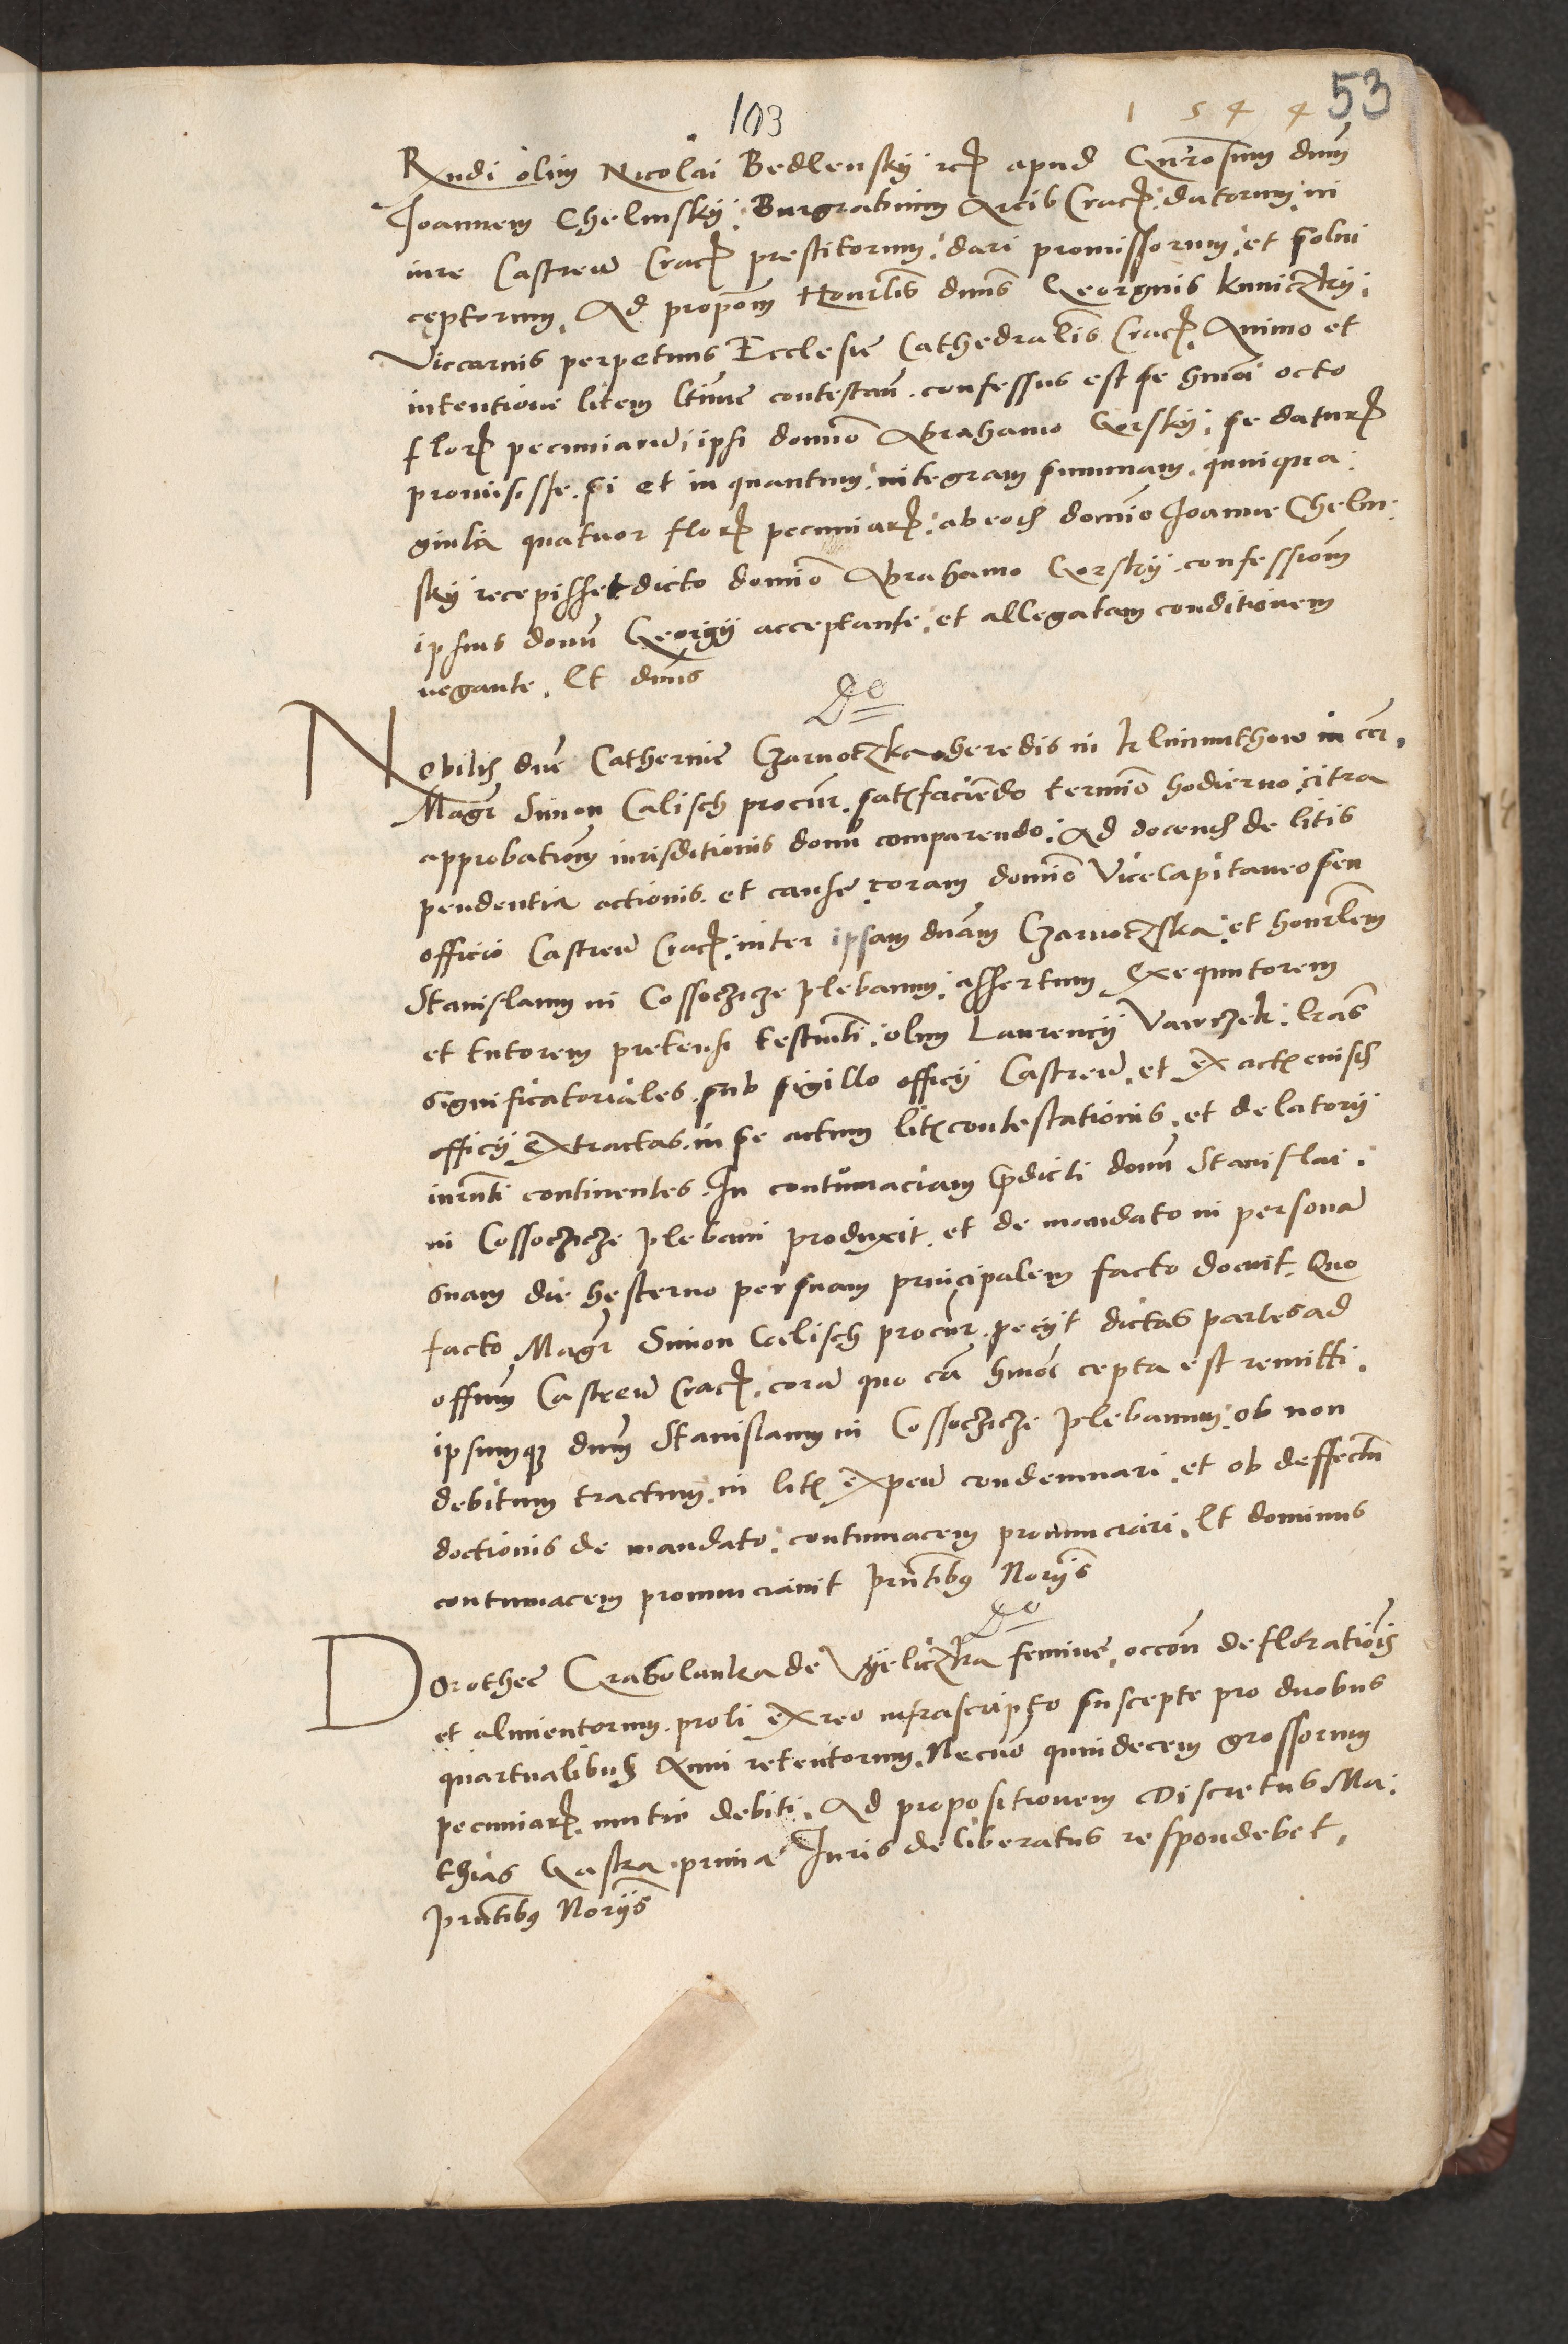 103
1 5 4 4 53
Rndi olim Nicolai Bedlensky rc apud Gnrosum dnm
Joannem Chelmsky, Burgrabium Arcis Crac. datorum, in
iure Castren Crac. prestitorum, dari promissorum, et solui
ceptorum. Ad proponem Honrlis dnus Georgius Kuniczky,
Viccarius perpetuus Ecclesie Cathedralis Crac. Animo et
intentione litem ltime contestan. confessus est se hmoi octo
flor. pecuniarum, ipsi domino Abrahamo Gorsky, se datur.
promisisse, si et in quantum, integram summam, quinqua-
ginta quatuor flor. pecuniar. ab eod. domino Joanne Chelm-
sky recepisset dicto domino Abrahamo Gorsky, confessionem
ipsius domi Georgij acceptante, et allegatam conditionem
negante. Et dnus
Do
Nobilis dne Catherine Czarnotzka heredis in Klimunthow in ccr.
Magr Simon Calisch procur. satisfaciendo termino hodierno, citra
approbationem iurisditionis domi comparendo, Ad docend. de litis
pendentia actionis et cause, coram domino ViceCapitaneo seu
officio Castren Crac. inter ipsam dnam Czarnotzska, et honrlem
Stanislaum in Cossoczicze plebanum, assertum exequutorem
et tutorem pretensi testmti, olim Laurencij Vawrzek, lras
significatoriales, sub sigillo officij Castren, et ex actis eiusd.
officij extractas, in se actum litis contestationis, et delatorij
iurmti continentes. In contumaciam predicti domi Stanislai,
in Cossoczicze plebani produxit, et de mandato in personam
suam die hesterno per suam principalem facto docuit. Quo
facto Magr Simon Calisch procur. petijt dictas partes ad
offium Castren Crac. coram quo ca hmoi cepta est remitti,
ipsumque dnm Stanislaum in Cossoczicze plebanum, ob non
debitum tractum, in litis expen condemnari, et ob deffectum
doctionis de mandato, contumacem pronunciari. Et dominus
contumacem pronunciauit pntibus Norijs
Do
Dorothee Grabolanka de Vyeliczka femine, occone deflorationis
et alimentorum, proli ex reo infrascripto suscepte pro duobus
quartualibus Anni retentorum, Necno quindecem grossorum
pecuniar. mutui debiti, Ad propositionem Discretus Ma-
thias Gaska prima Juris deliberatus respondebet,
pntibus Norijs